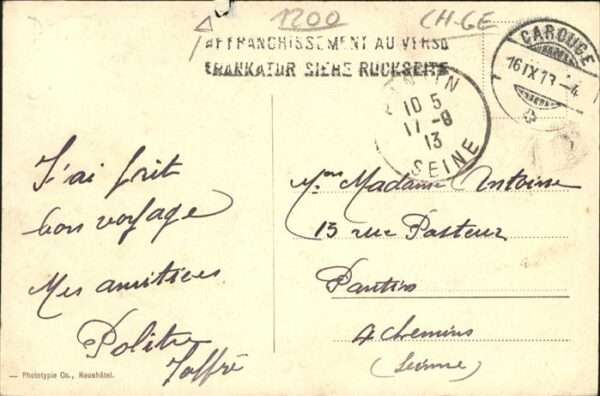 1200
CH-GE
AFFRANCHISSEMENT AU VERSO
FRANKATUR SIEHE RUCKSEITE
CAROUGE
16 IX 13 - 4
PANTIN
10 5
17 - 9
13
SEINE
J'ai fait
bon voyage
Mes amitiées
Politre
Joffré
Mme Madame Antoine
15 rue Pasteur
Pantin
4 chemins
(Seinne)
— Phototypie Co., Neuchâtel.